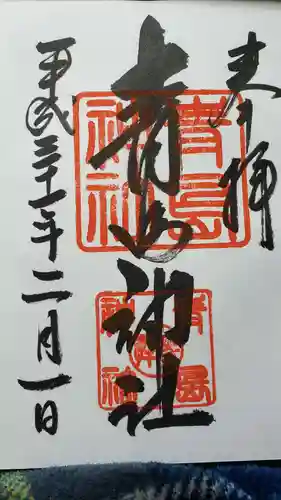 奉拝
青島神社
平成三十一年二月一日
青島
神社